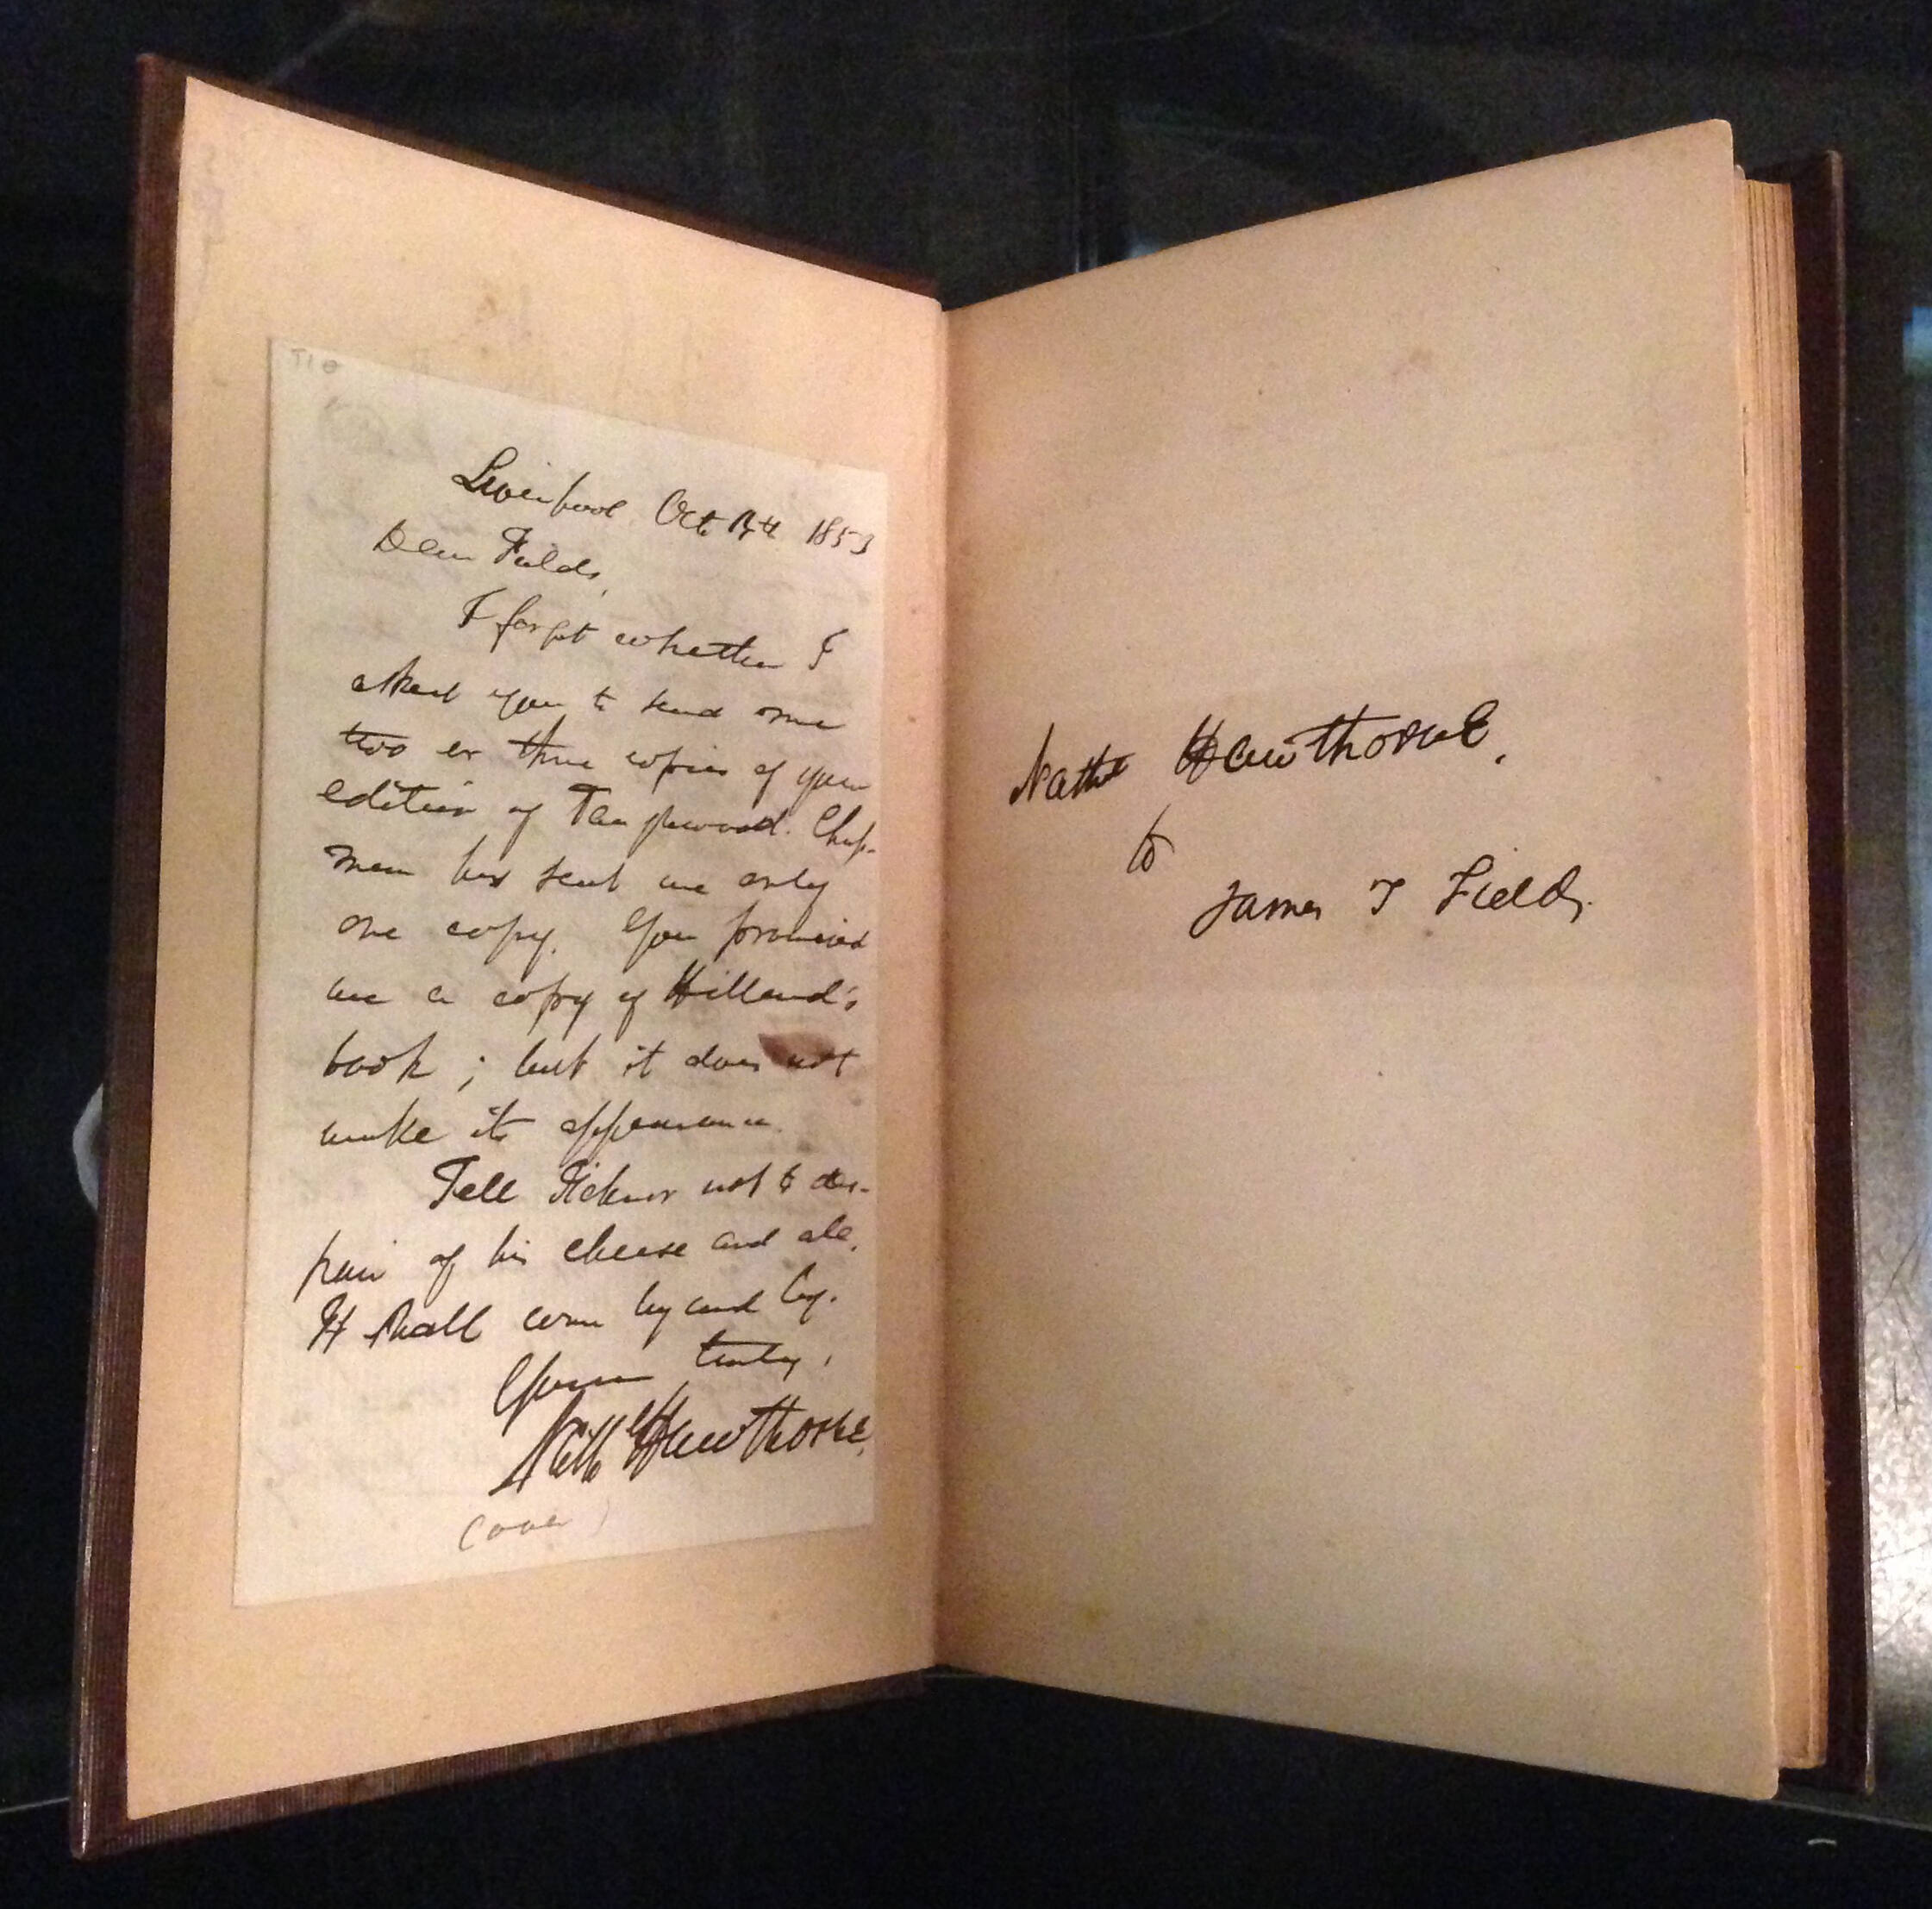 Liverpool Oct. 13th 1853
Dear Fields,
I forget whether I
asked you to send me
two or three copies of your
edition of Tanglewood. Chap-
man has sent me only
one copy. You promised
me a copy of Hillard's
book; but it does not
make its appearance.
Tell Ticknor not to des-
pair of his cheese and ale.
It shall come by and by.
Yours truly,
Nath Hawthorne.
(over)
Nath Hawthorne,
to
James T Fields.